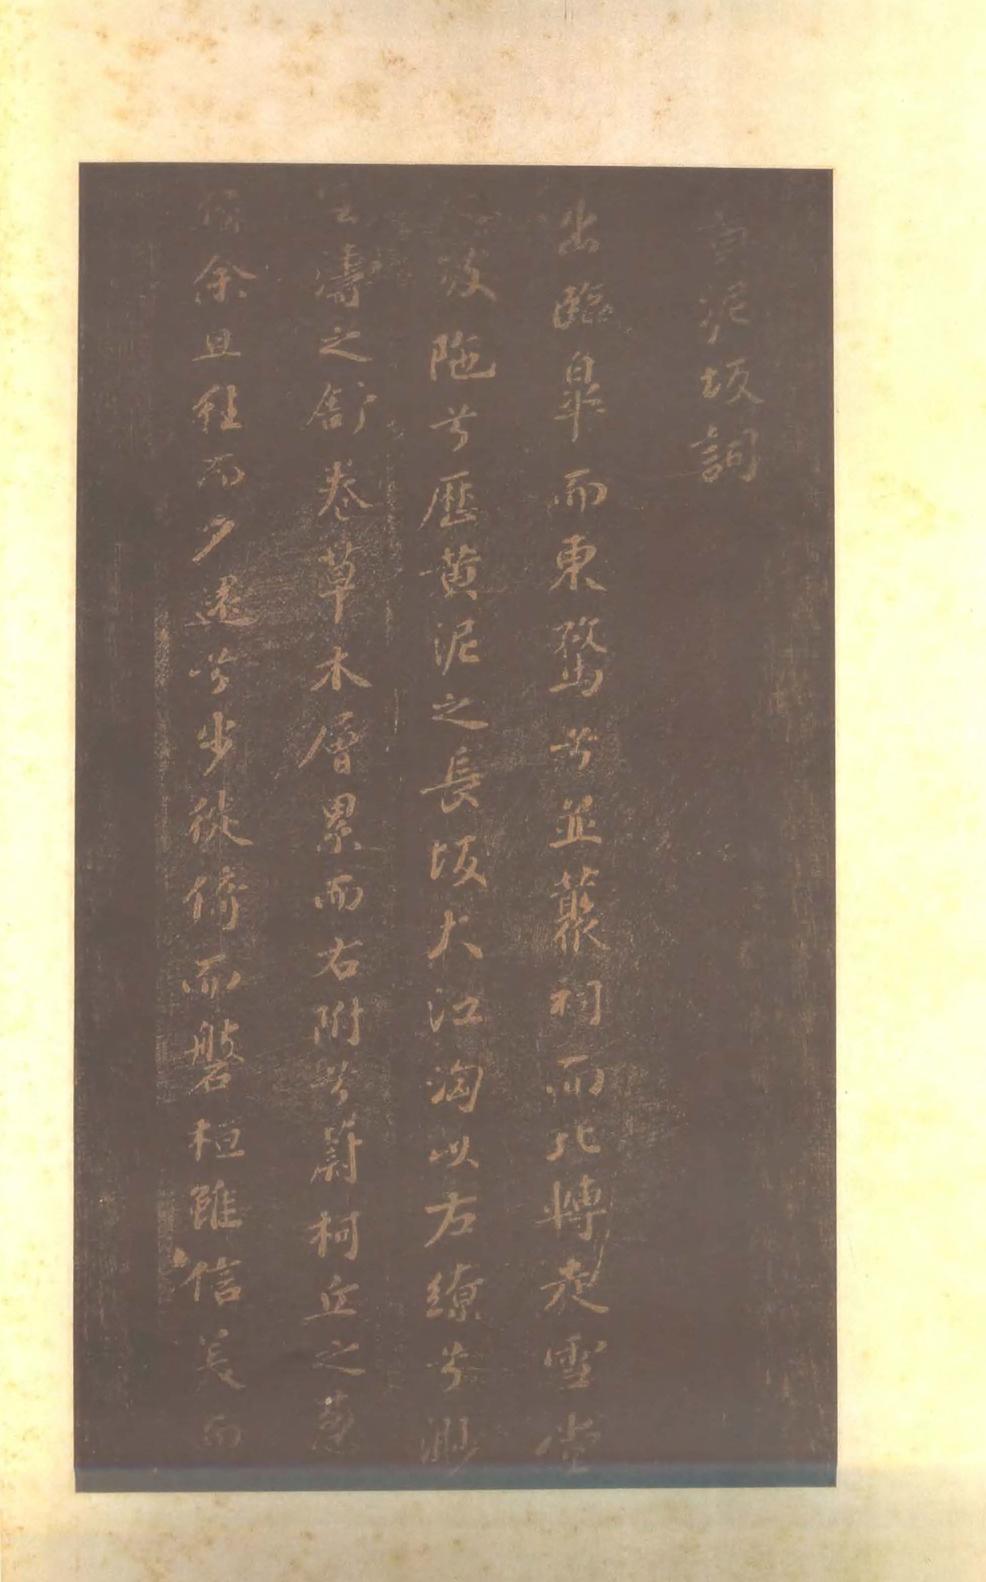 黄泥坂詞
出臨皐而東騖兮並藂祠而北轉走雪堂
之陂陁兮歷黄泥之長坂大江洶以左繚兮渺
雲濤之舒卷草木層累而右附兮蔚柯丘之葱
蒨余旦往而夕還兮步徙倚而盤桓雖信美而